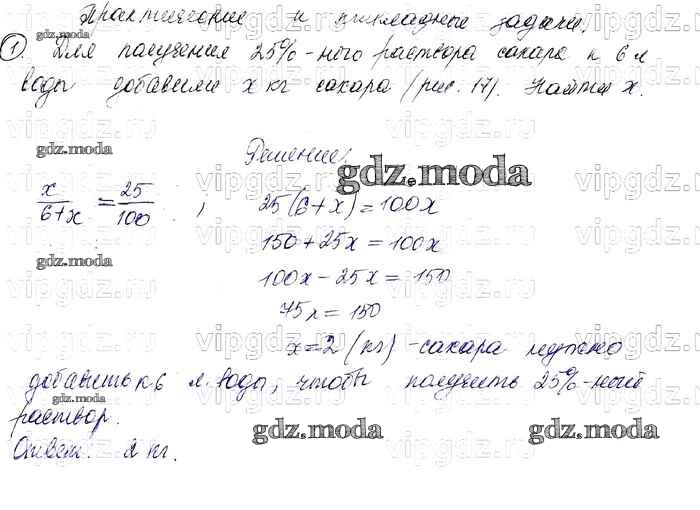 Практические и прикладные задачи.
1. Для получения 25%-ного раствора сахара к 6 л
воды добавили x кг сахара (рис. 17). Найти x.
Решение:
x/(6+x) = 25/100 ; 25(6+x)=100x
150+25x=100x
100x-25x=150
75x=150
x=2 (кг) -сахара нужно
добавить к 6 л. воды, чтобы получить 25%-ный
раствор.
Ответ: 2 кг.
gdz.moda
gdz.moda
gdz.moda
gdz.moda
gdz.moda
gdz.moda
gdz.moda
vipgdz.ru